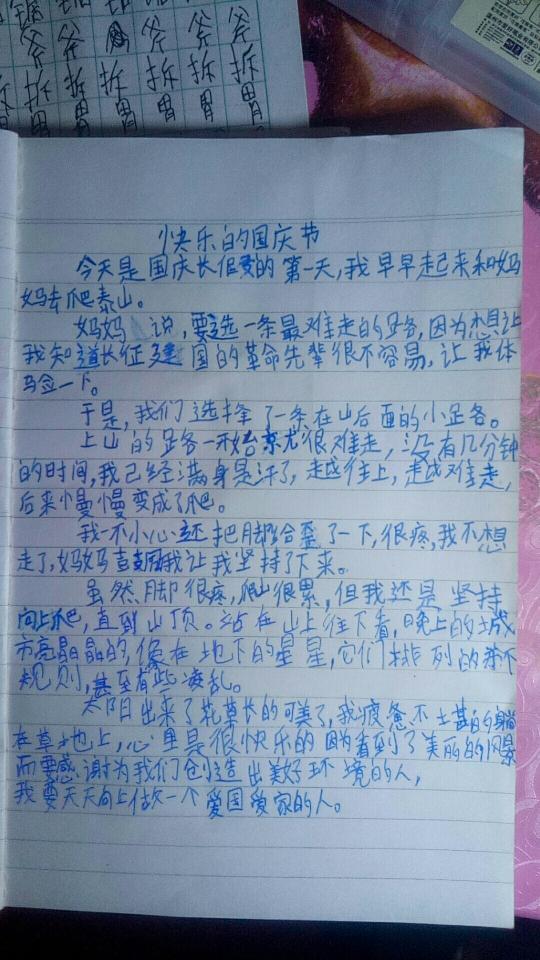 斧 斧 斧 斧 斧
拆 拆 拆 拆 拆
胃 胃 胃 胃 胃
快乐的国庆节
今天是国庆长假的第一天,我早早起来和妈
妈去爬泰山。
妈妈说,要选一条最难走的路,因为想让
我知道长征建国的革命先辈很不容易,让我体
验一下。
于是,我们选择了一条在山后面的小路。
上山的路一开始就很难走,没有几分钟
的时间,我已经满身是汗了,越往上,越难走,
后来慢慢变成了爬。
我一不小心还把脚给歪了一下,很疼,我不想
走了,妈妈鼓励我让我坚持了下来。
虽然脚很疼,爬山很累,但我还是坚持
向上爬,直到山顶。站在山上往下看,晚上的城
市亮晶晶的,像在地下的星星,它们排列的并不
规则,甚至有些凌乱。
太阳出来了花草长的可美了,我疲惫不土甚的躺
在草地上,心里是很快乐的因为看到了美丽的风景
而要感谢为我们创造出美好环境的人,
我要天天向上做一个爱国爱家的人。